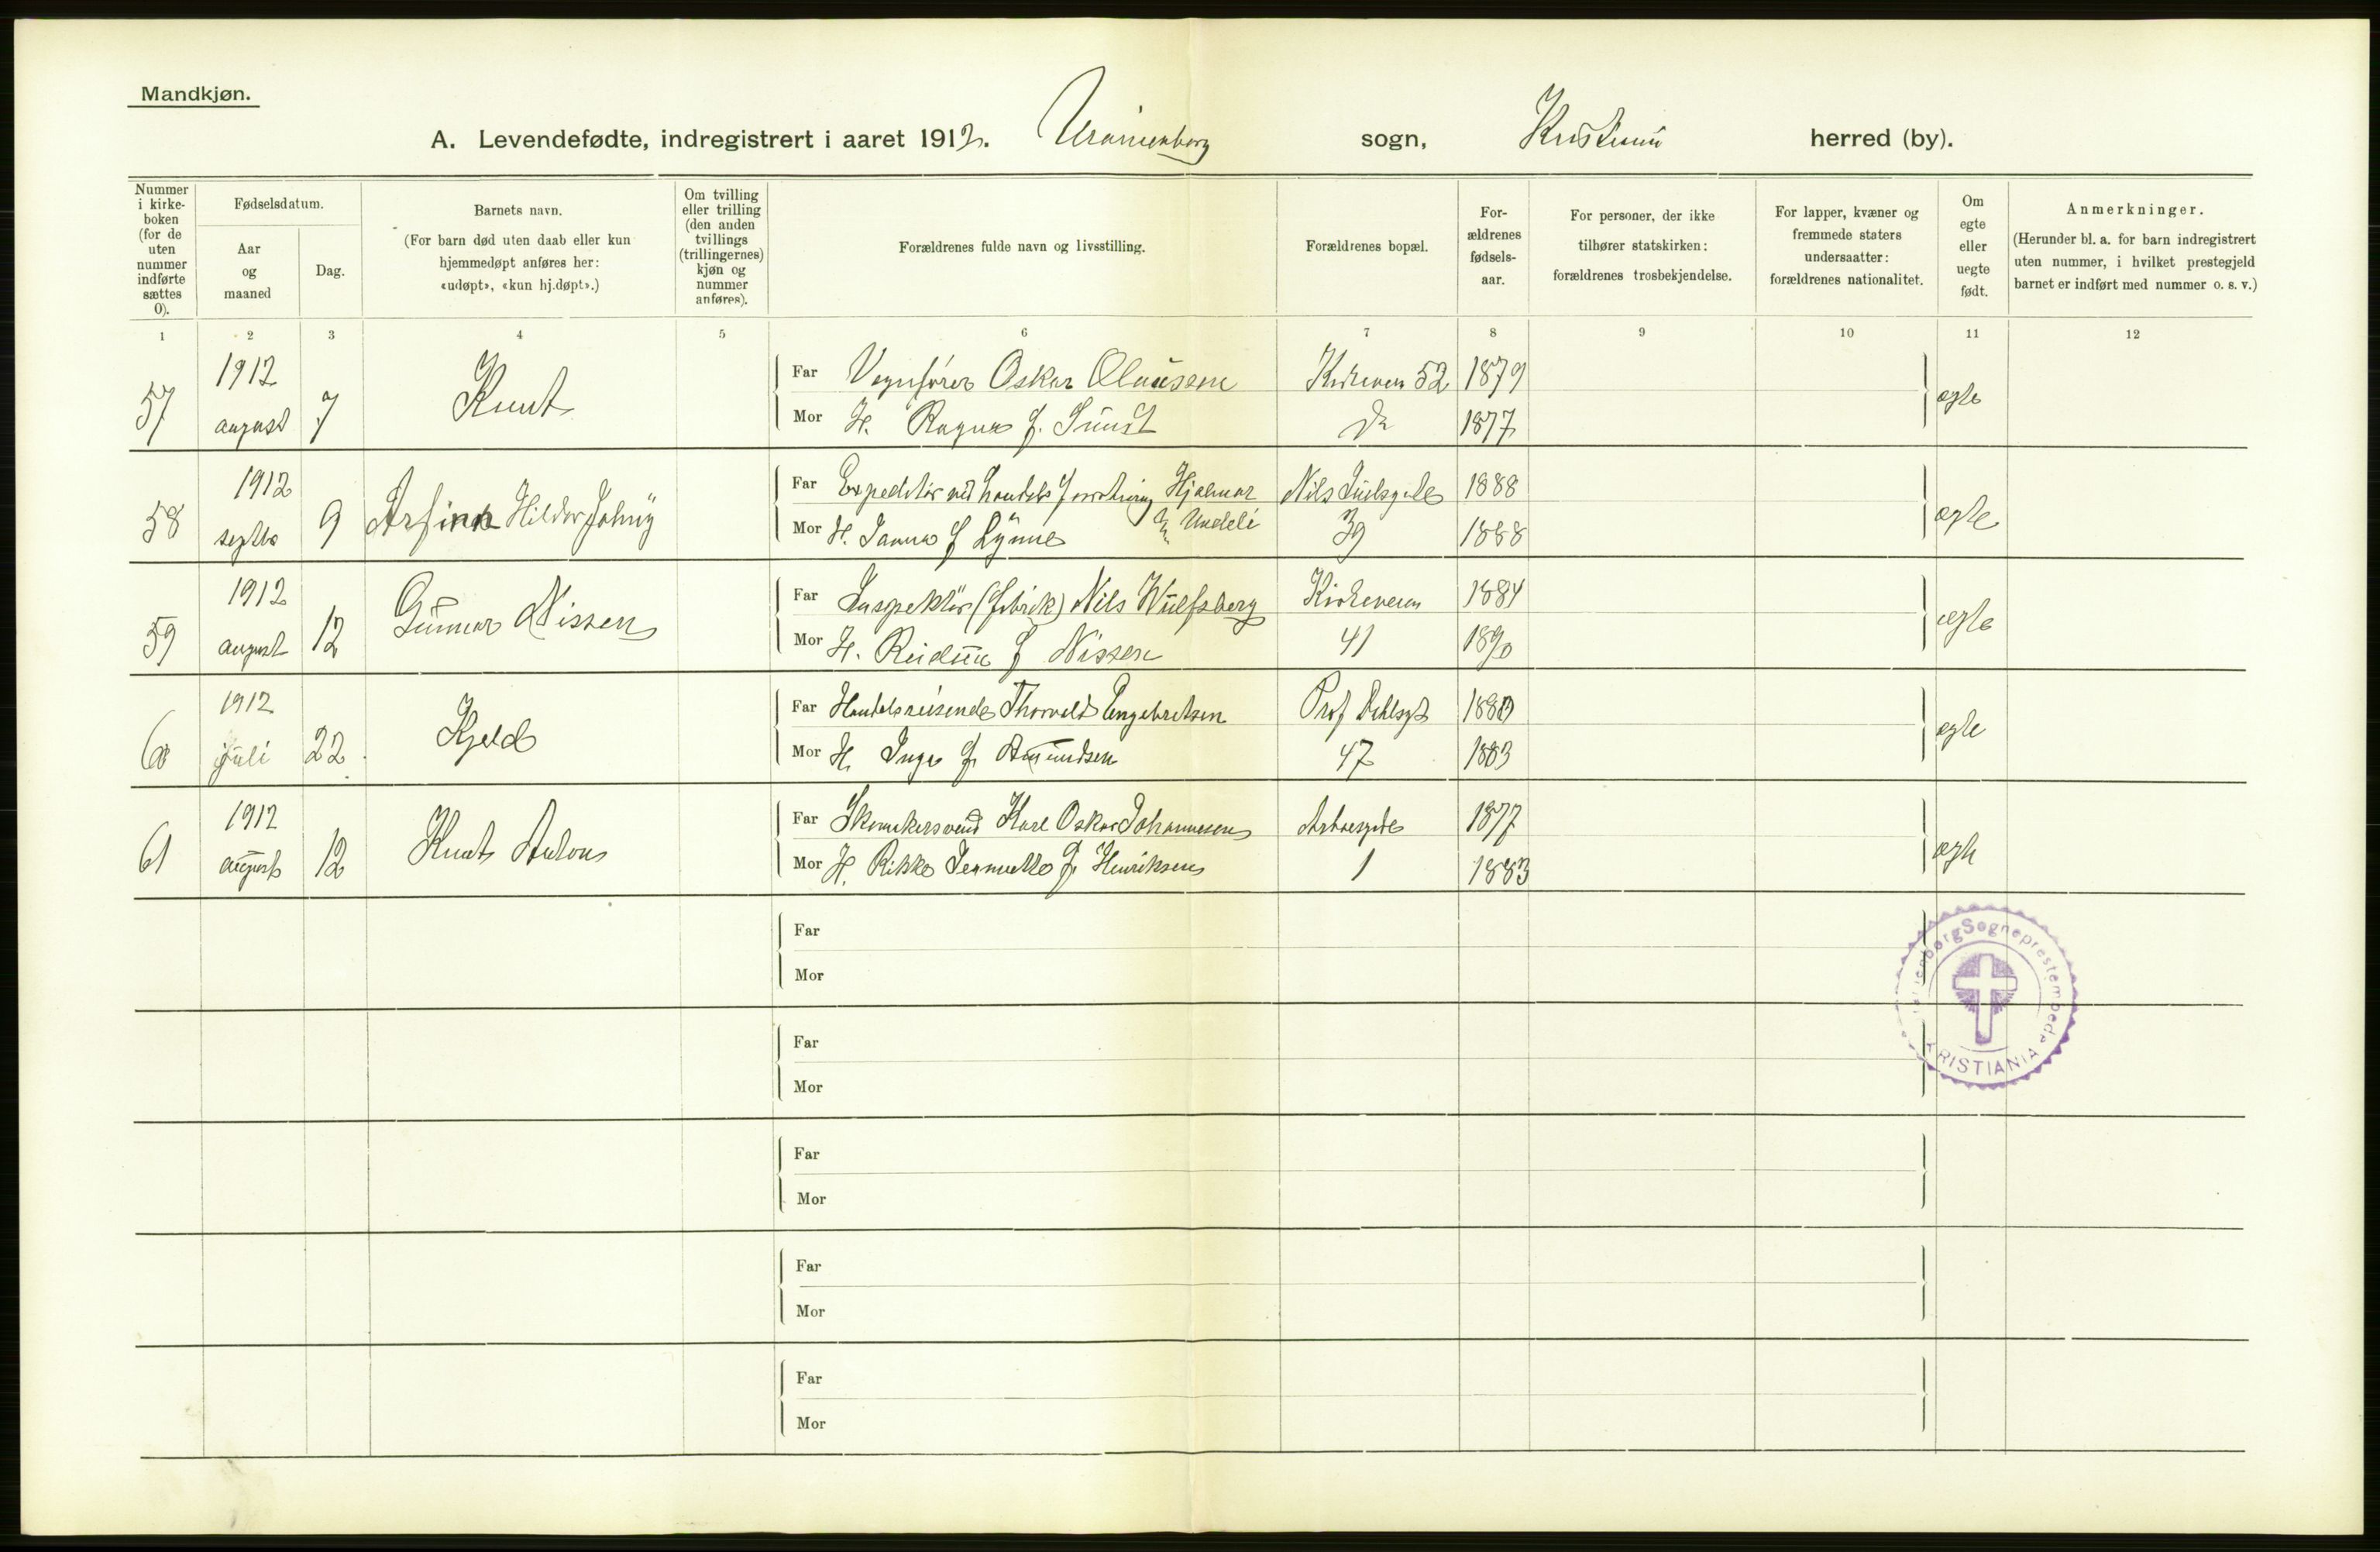 Mandkjøn.
A. Levendefødte, indregistrert i aaret 1912. Uranienborg sogn, Kristiania herred (by).
Nummer i kirke-boken (for de uten nummer indførte sættes 0).
Fødselsdatum.
Aar og maaned
Dag.
Barnets navn.
(For barn død uten daab eller kun hjemmedøpt anføres her: «udøpt», «kun hj.døpt».)
Om tvilling eller trilling (den anden tvillings (trillingernes) kjøn og nummer anføres).
Forældrenes fulde navn og livsstilling.
Forældrenes bopæl.
For-ældrenes fødsels-aar.
For personer, der ikke tilhører statskirken: forældrenes trosbekjendelse.
For lapper, kvæner og fremmede staters undersaatter: forældrenes nationalitet.
Om egte eller uegte født.
Anmerkninger.
(Herunder bl. a. for barn indregistrert uten nummer, i hvilket prestegjeld barnet er indført med nummer o. s. v.)
1 2 3 4 5 6 7 8 9 10 11 12
57 1912 august 7 Knut
Far Vognfører Oskar Olaussen Kirkeveien 52 1879
Mor H. Ragna f. Sundt do 1877
egte
58 1912 septbr 9 Arfinn Hildor Johny
Far Expeditør ved handels forretning Hjalmar Undeli Nils Juelsgate 1888
Mor H. Janna f Lynne 39 1888
egte
59 1912 august 12 Gunnar Nissen
Far Inspektør (fabrik) Nils Wulfsberg Kirkeveien 1884
Mor H. Reidun f Nissen 41 1890
egte
60 1912 juli 22 Kjeld
Far Handelsreisende Thorvald Engebretsen Prof Dahlsgt 1880
Mor H. Inga f. Amundsen 47 1883
egte
61 1912 august 12 Knut Anton
Far Skomakersvend Karl Oskar Johannesen 1877
Mor H. Rikke f. Henriksen 1 1883
egte
Far
Mor
Far
Mor
Far
Mor
Far
Mor
Far
Mor
Uranienborg Sogneprestembede
KRISTIANIA